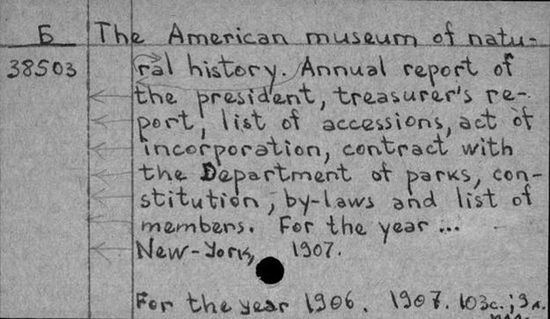 Б The American museum of natu-
38503 ral history. Annual report of
the president, treasurer's re-
port, list of accessions, act of
incorporation, contract with
the Department of parks, con-
stitution, by-laws and list of
members. For the year ...
New-York, 1907.
For the year 1906. 1907. 103c.; 9л.